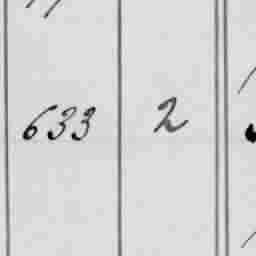 633 2